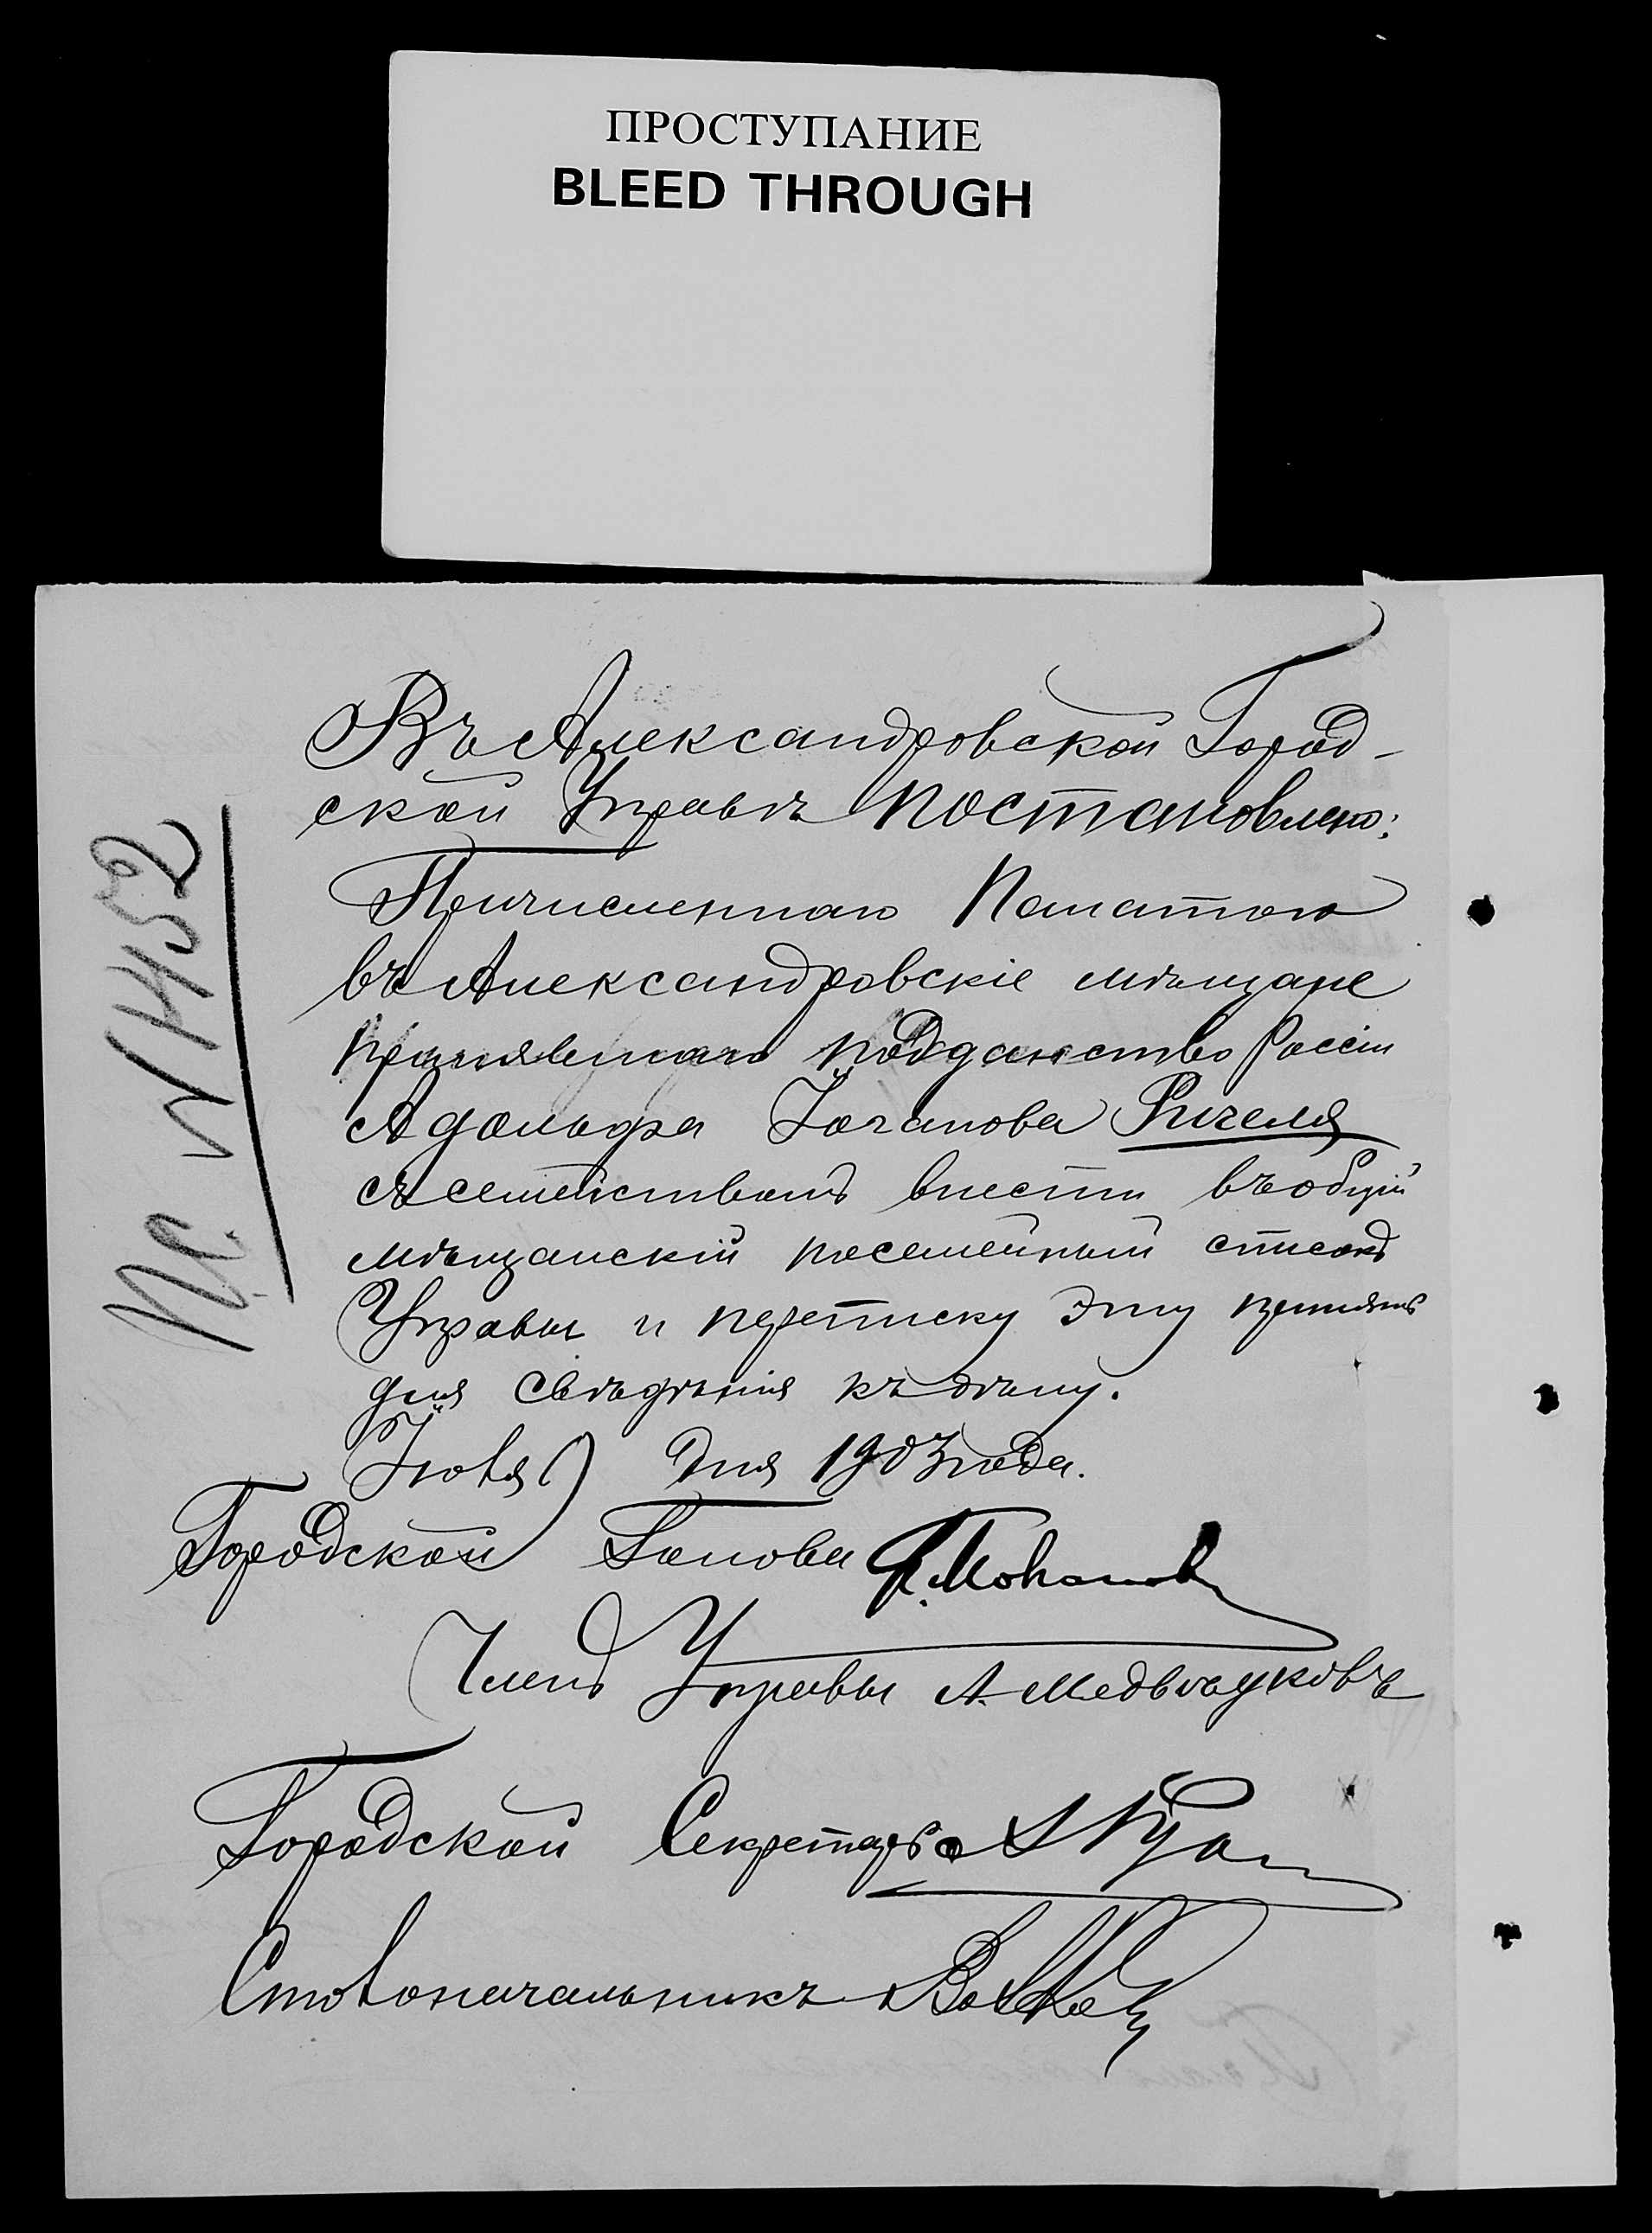 ПРОСТУПАНИЕ
BLEED THROUGH
Въ Александровской Город-
ской Управѣ постановлено:
Причисленнаго Палатою
въ Александровскіе мѣщане
принявшаго подданство Россіи
Адольфа Іоганова Ригеля
съ семействомъ внести въ общій
мѣщанскій посемейный списокъ
Управы и переписку эту принять
для свѣдѣнія къ дѣлу.
Іюля дня 1903 года.
Городской Голова
Членъ Управы А. Медвѣдковъ
Городской Секретарь
Столоначальникъ
№ 1452